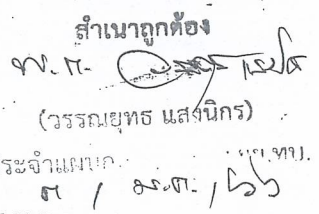 สำเนาถูกต้อง
พ.ต.
(วรรณยุทธ แสงนิกร)
ระจำแผนก ทบ.
๓ / ม.ค. / ๖๖